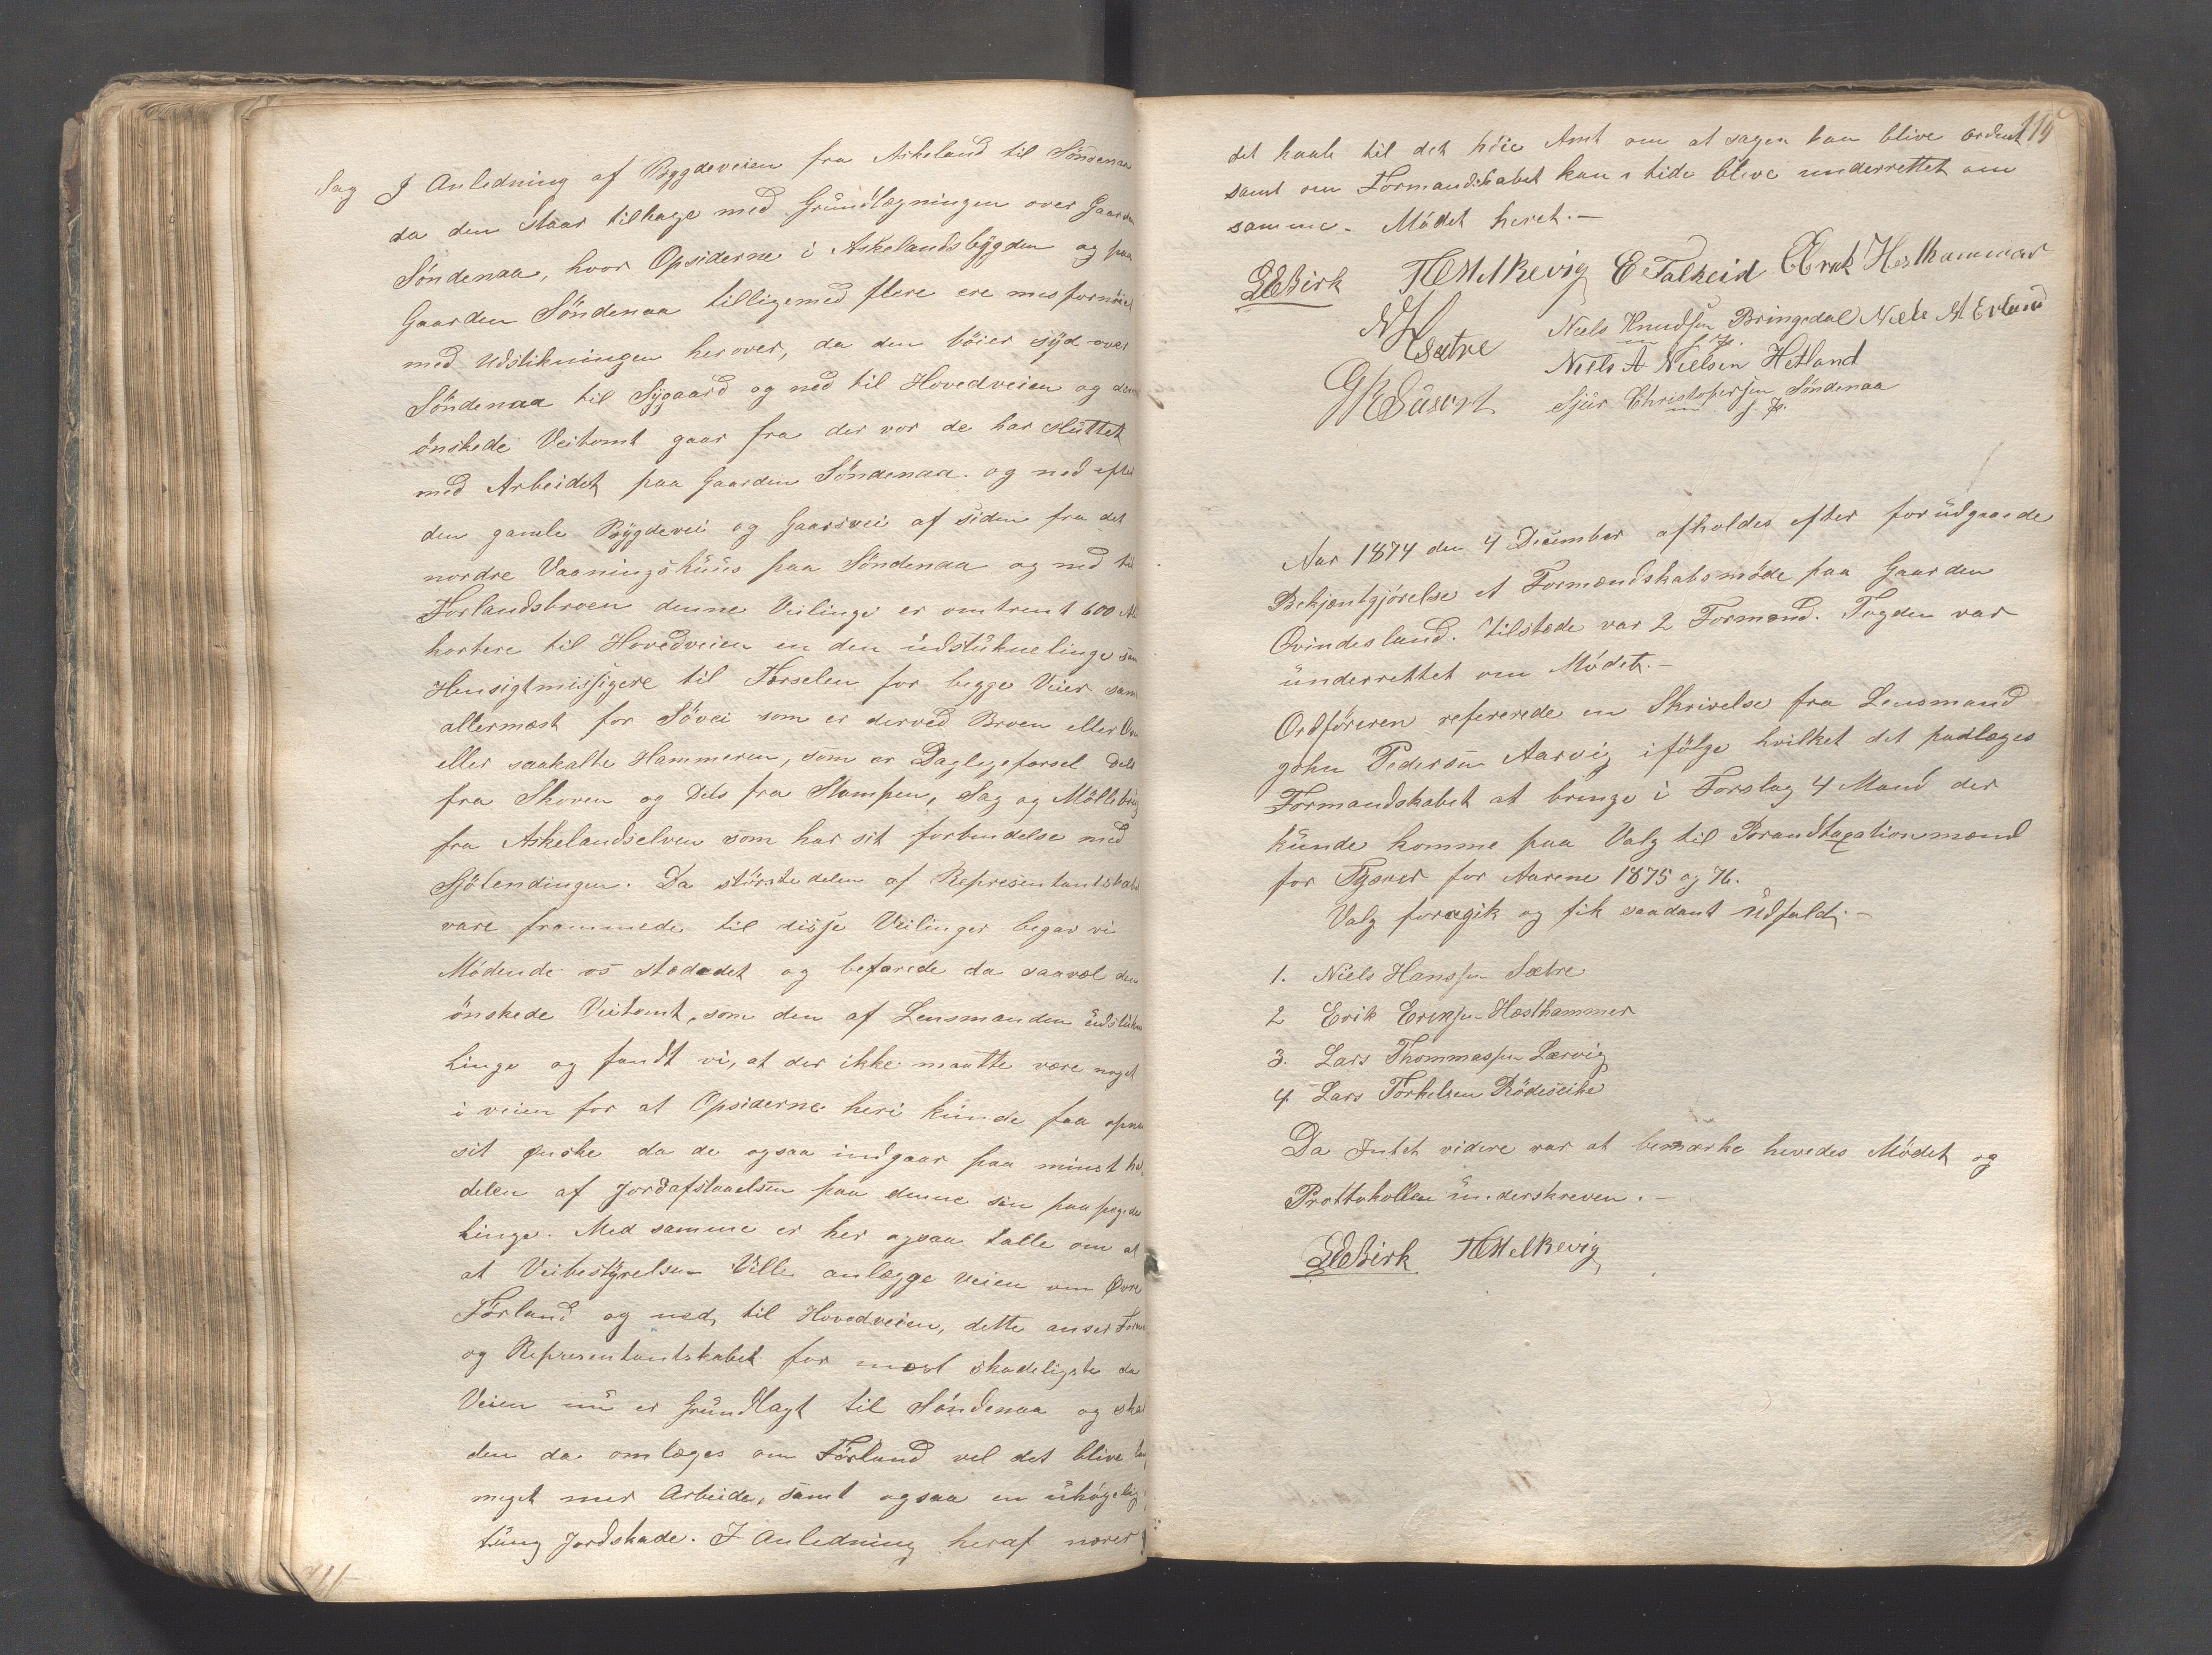 Sag I Anledning af Bygdeveien fra Askeland til Söndenaa
da den staar tilbage med Grundlægningen over Gaarden
Söndenaa, hvor Opsiderne i Askelandsbygden og paa
Gaarden Söndenaa tilligemed flere ere misfornöiet
med Udstikningen herover, da den böier syd over
Söndenaa til Sygaard og ned til Hovedveien og den
önskede Veitomt gaar fra der vor de har sluttet
med Arbeidet paa Gaarden Söndenaa og ned efter
den gamle Bygdevei og Gaarsvei af siden fra det
nordre Vaaningshuus paa Söndenaa og ned til
Forlandsbroen denne Veilinge er omtrent 600 Al
kortere til Hovedveien en den udstukne linge
Hensigtmissigere til Færselen for begge Veier
allermæst for Sövei som er derved Broen eller
eller saakalte Hammeren, som er Daglegefærsel Dels
fra Skoven og Dels fra Stampen, Sag og Möllebrug
fra Askelandselven som har sit forbindelse med
Sjölendingen. Da störstedelen af Representantskabet
vare frammede til disse Veilinger begav vi
Mödende os stædedet og befarede da saavæl den
önskede Veitomt, som den af Lensmanden udstukne
Linge og fandt vi, at der ikke maatte være noget
i veien for at Opsiderne heri kunde faa opnaa
sit ønske da de ogsaa indgaar paa minst
delen af Jordafstaaelsen paa denne sin paapegede
Linge. Med samme er her ogsaa talle om at
at Veibestyrelsen Ville anlægge Veien om Øvre
Förland og ned til Hovedveien, dette anser
og Representantskabet for mæst skadeligste da
Veien nu er Grundlagt til Söndenaa og skal
den da omlæges om Förland vel det blive
meget mer Arbeide, samt ogsaa en
tung Jordskade. I Anledning heraf nærer
115
det haab til det höie Amt om at sagen kan blive ordent
samt om Formandskabet kan i tide blive underrettet om
samme. Mödet hevet.—
LOBirk THMelkevig E Falkeid E Erik Hesthammer
NH Sætre Niels Knudsen Bringedal Niels M Erland
m f P.
Niels A Nielsen Hetland
Sjur Christophersen Söndenaa
m. f. P.
Aar 1874 den 4 December afholdes efter forudgaaede
Bekjentgjörelse et Formændskabsmöde paa Gaarden
Qvindesland. Tilstede var 2 Formænd. Fogden var
underrettet om Mödet.—
Ordföreren refererede en Skrivelse fra Lensmand
John Pedersen Aarvig ifölge hvilket det paalæges
Formandskabet at bringe i Forslag 4 Mand der
kunde komme paa Valg til Brandtaxationsmænd
for Tysver for Aarene 1875 og 76.
Valg foregik og fik saadant Udfald:—
1. Niels Hanssen Sætre
2 Erik Eriksen Hæsthammer
3. Lars Thommassen Lærvig
4. Lars Torkelsen Rödeseike
Da Intet videre var at bemærke hevedes Mödet og
Prottokollen underskreven.—
LOBirk THMelkevig